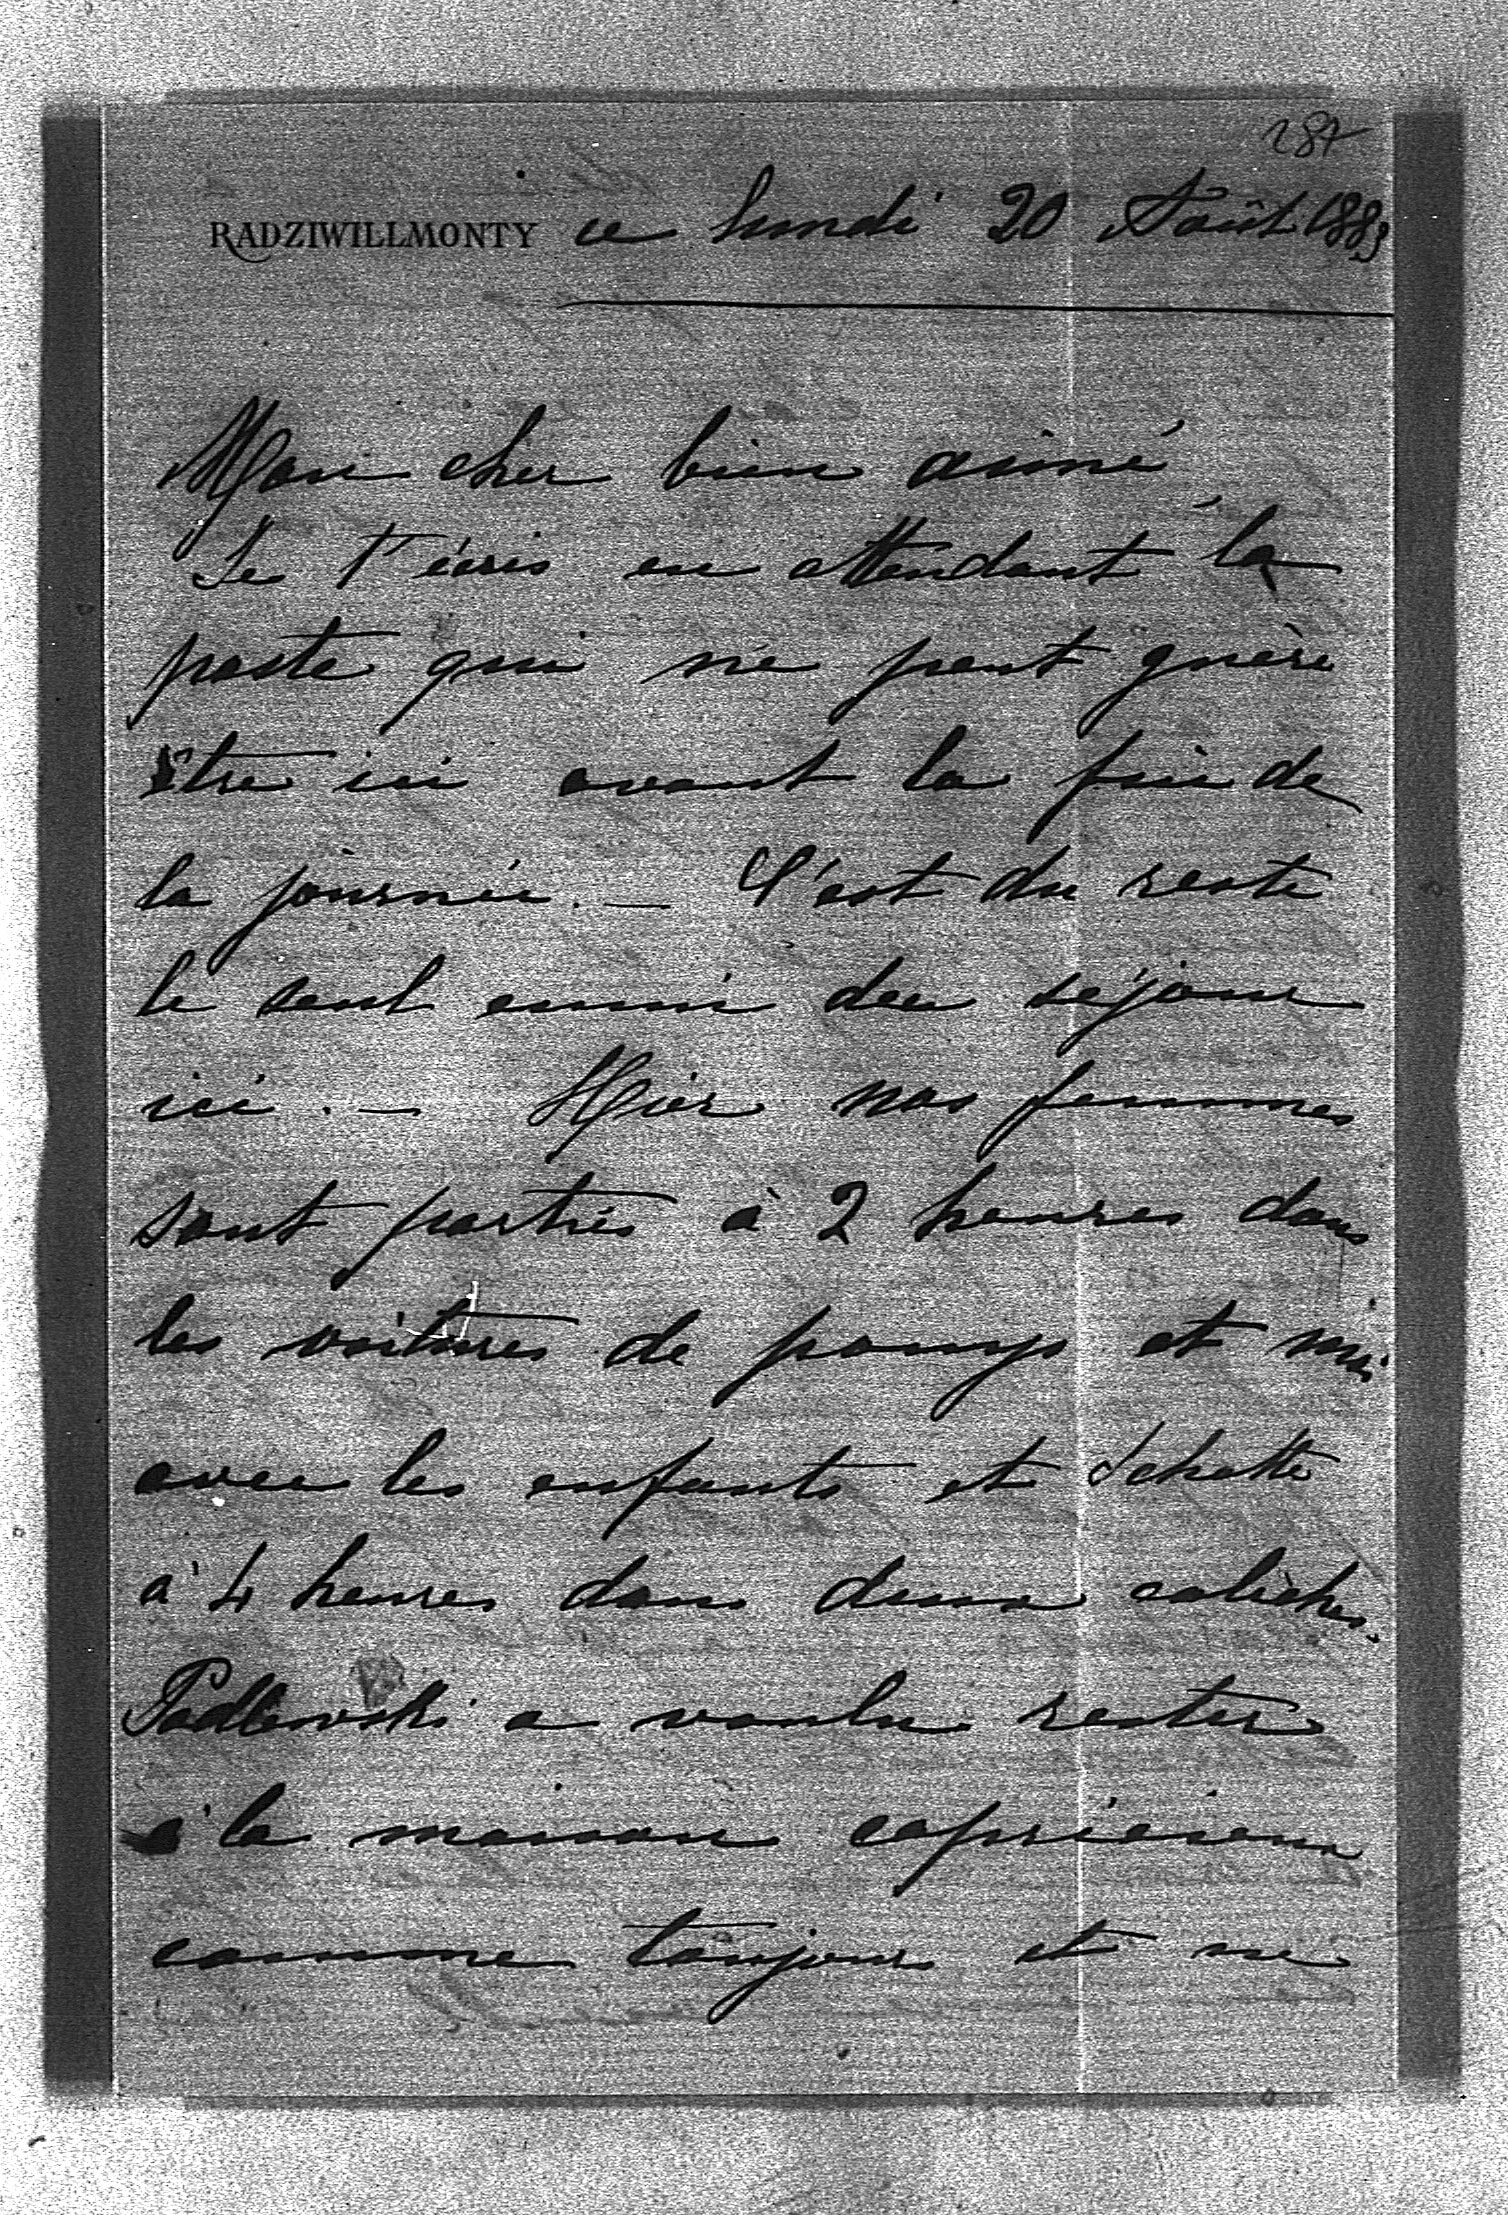 287
RADZIWILLMONTY ce lundi 20 Août 1883
Mon cher bien aimé
Je t'écris en attendant la
poste qui ne peut guère
être ici avant la fin de
la journée. — C'est du reste
le seul ennui du séjour
ici. — Hier nos femmes
sont parties à 2 heures dans
les voitures de poneys et moi
avec les enfants et
à 4 heures dans deux calèches.
Podlewski a voulu rester
à la maison capricieux
comme toujours et ne